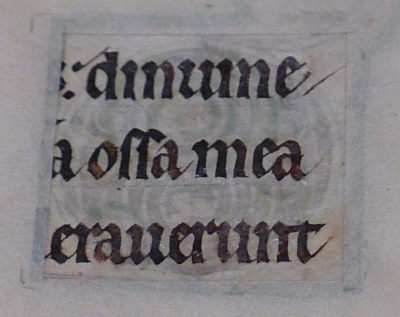 s: dinume
a oſſa mea
erauerunt